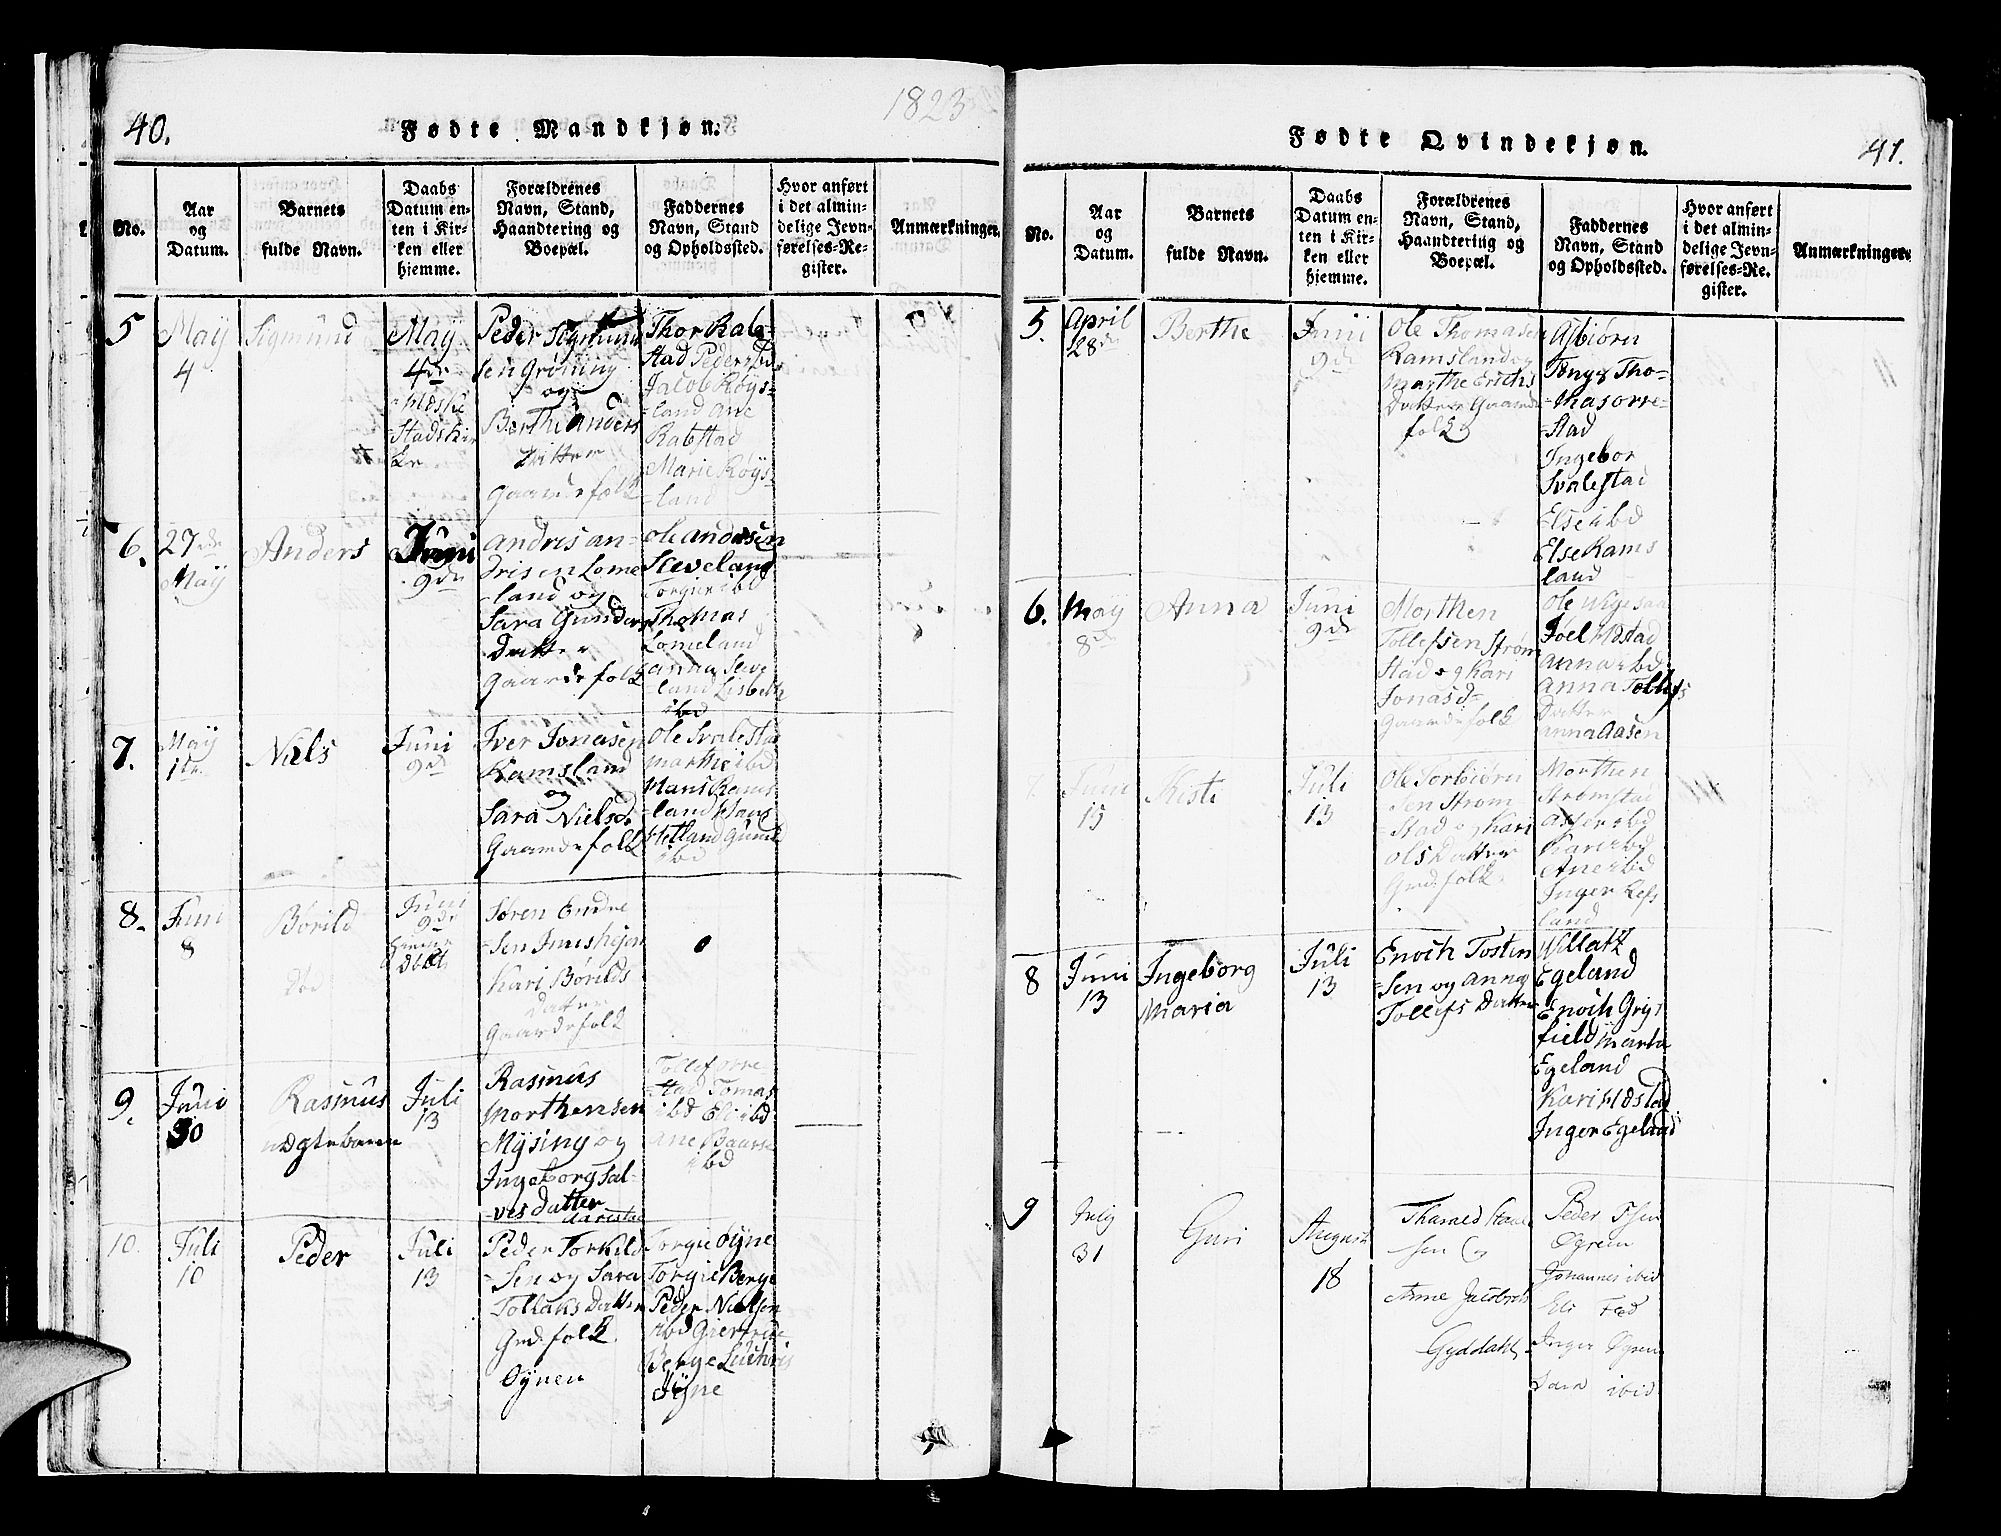 1823
40.
Fødte Mandkjøn.
No.
Aar
og
Datum.
Barnets
fulde Navn.
Daabs
Datum en-
ten i Kir-
ken eller
hjemme.
Forældrenes
Navn, Stand,
Haandtering og
Boepæl.
Faddernes
Navn, Stand
og Opholdssted.
Hvor anført
i det almin-
delige Jevn-
førelses-Re-
gister.
Anmærkninger.
5
May
4
Sigmund
May
4de
Stadskir
ke
Peder Sigmund
sen Grøning
og
Berthe Anders
Datter
Gaardefolk
Thor Rab-
stad Peder ibd
Jacob Røys-
-land Ane
Rabstad
Marie Røys-
-land
6.
27de
May
Anders
Juni
9de
Andris An-
drisen Lome
-land og
Sara Gunders
Datter
Gaardefolk
Ole Andersen
Sleveland
Torgier ibd
Thomas
Lomeland
Anna Sleve
-land Lisbeth
ibd
7.
May
1te
Niels
Juni
9de
Iver Jonasen
Ramsland
og
Sara Nielsd.
Gaardefolk
Ole Svalestad
Marthe ibd
Hans Rams
-land Hans
Hetland Guni
ibd
8.
Juni
8
Børild
død
Juni
9de
hieme
døbt
Søren Endre
-sen
Kari Børilds
Datter
Gaardefolk
0
9.
Juni
30
Rasmus
ægtebarn
Juli
13
Rasmus
Morthensen
Mysing og
Ingeborg Sal-
-ves datter
Aarestad
Tollef Orre
-stad Tomas
ibd Eli ibd
Ane
ibd
10.
Juli
10
Peder
Juli
13
Peder Torkild
-sen og Sara
Tollaks Datter
Grd. folk
Øynen
Torgie Øyne
Torgie Berge
Peder Nielsen
ibd Giertrue
Berge
Øyne
41.
Fødte Qvindekjøn.
No.
Aar
og
Datum.
Barnets
fulde Navn.
Daabs
Datum en-
ten i Kir-
ken eller
hjemme.
Forældrenes
Navn, Stand,
Haandtering og
Boepæl.
Faddernes
Navn, Stand
og Opholdssted.
Hvor anført
i det almin-
delige Jevn-
førelses-Re-
gister.
Anmærkninger.
5.
April
28de
Berthe
Junii
9de
Ole Thomasen
Ramsland og
Marthe Erichs
Datter Gaarde
folk
Asbiørn
Tho-
Orre-
-stad
Ingebor
Svalestad
Else ibd
Else Rams
land
6.
May
8de
Anna
Juni
9de
Morthen
Tollefsen Strøm
stad og Kari
Jonasd=
Gaardefolk
Ole
Joel
Anna ibd
Anna Tollefs
Datter
Anna Aasen
Juni
15
Kisti
Juli
13
Ole Torbiørn
sen Strøm
-stad og Kari
Ols Datter
Grd. folk
Morthen
Strømstad
ibd
Kari ibd
Ane ibd
Inger Lefs
land
8
Juni
13
Ingeborg
Maria
Juli
13
Enoch Tosten
-sen og Anna
Tollefs Datter
Willatz
Egeland
Enoch Grys
field Marta
Egeland
Kari
Inger Egeland
9
July
31
Guri
August
18
sen og
Anne Jacobsd.
Gyddahl
Peder
Øgreiu
Johannes ibid
Eli
Inger
Sara ibid